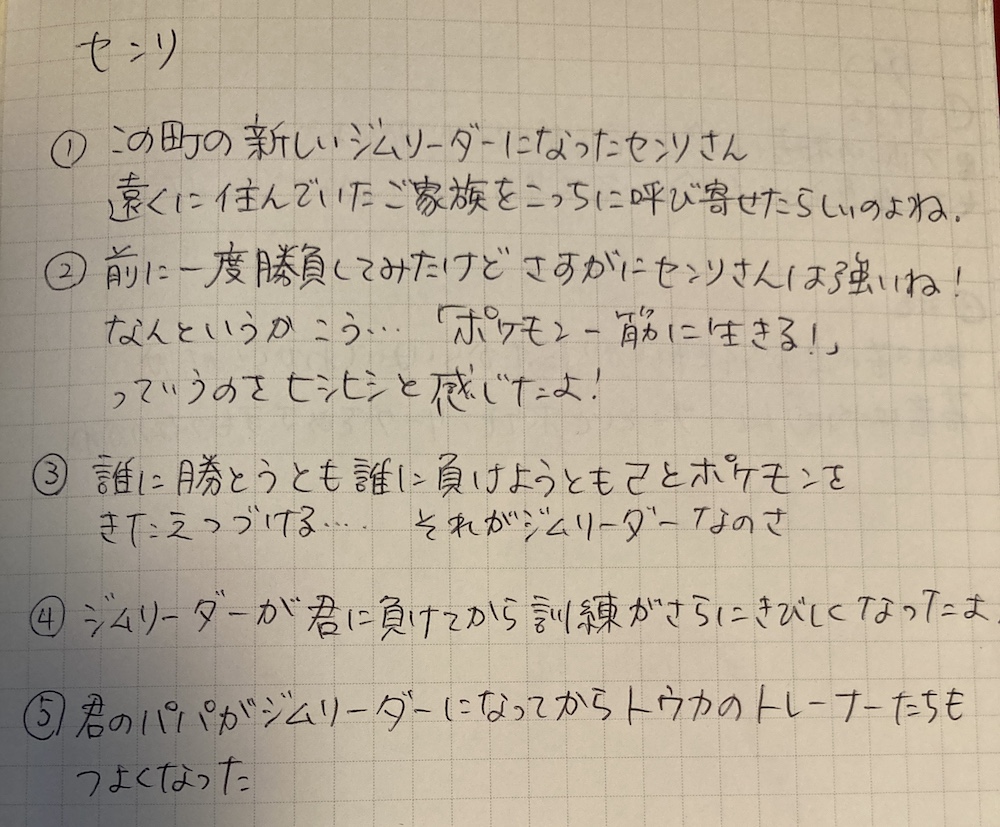 センリ
① この町の新しいジムリーダーになったセンリさん
遠くに住んでいたご家族をこっちに呼び寄せたらしいのよね.
② 前に一度勝負してみたけど さすがにセンリさんは強いね!
なんというかこう… 「ポケモン一筋に生きる!」
っていうのをヒシヒシと感じたよ!
③ 誰に勝とうとも誰に負けようとも己とポケモンを
きたえつづける… それがジムリーダーなのさ
④ ジムリーダーが君に負けてから訓練がさらにきびしくなったよ.
⑤ 君のパパがジムリーダーになってからトウカのトレーナーたちも
つよくなった